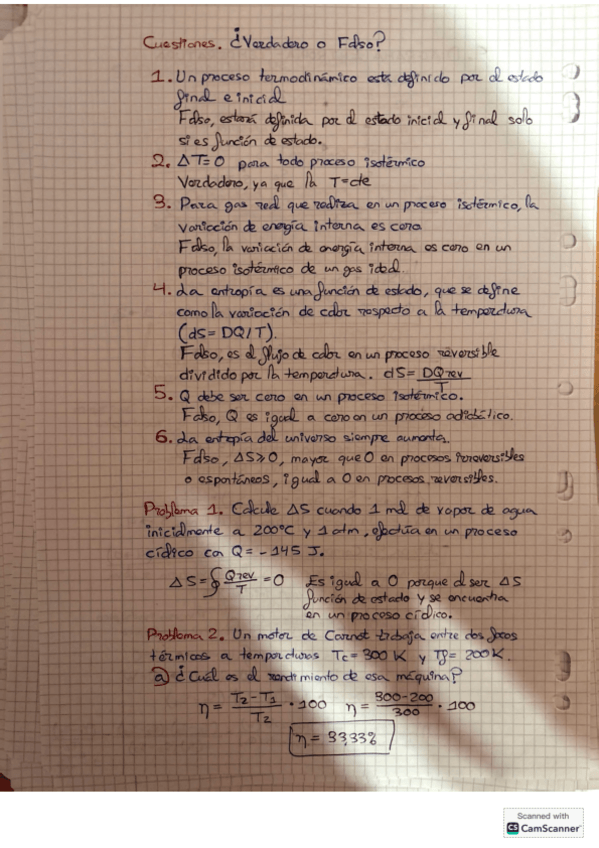 Cuestiones. ¿Verdadero o Falso?
1. Un proceso termodinámico está definido por el estado
final e inicial
Falso, estará definida por el estado inicial y final solo
si es función de estado.
2. ΔT=0 para todo proceso isotérmico
Verdadero, ya que la T=cte
3. Para gas real que realiza en un proceso isotérmico, la
variación de energía interna es cero
Falso, la variación de energía interna es cero en un
proceso isotérmico de un gas ideal.
4. La entropía es una función de estado, que se define
como la variación de calor respecto a la temperatura
(dS = DQ/T).
Falso, es el flujo de calor en un proceso reversible
dividido por la temperatura. dS = DQrev/T
5. Q debe ser cero en un proceso isotérmico.
Falso, Q es igual a cero en un proceso adiabático.
6. La entropía del universo siempre aumenta.
Falso, ΔS≥0, mayor que 0 en procesos irreversibles
o espontáneos, igual a 0 en procesos reversibles.
Problema 1. Calcule ΔS cuando 1 mol de vapor de agua
inicialmente a 200°C y 1 atm, efectúa en un proceso
cíclico con Q = -145 J.
ΔS = ∮ Qrev/T = 0 Es igual a 0 porque al ser ΔS
función de estado y se encuentra
en un proceso cíclico.
Problema 2. Un motor de Carnot trabaja entre dos focos
térmicos a temperaturas Tc = 300 K y Tf = 200 K.
a) ¿Cuál es el rendimiento de esa máquina?
η = T2 - T1 / T2 · 100 η = 300-200 / 300 · 100
η = 33,33%
Scanned with
CS CamScanner